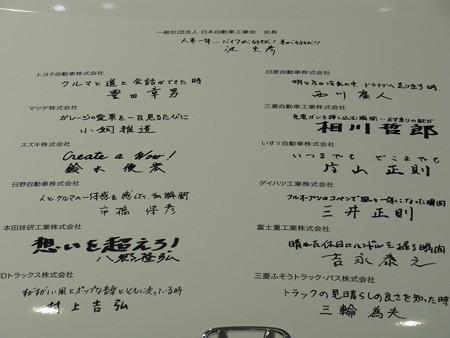 一般社団法人 日本自動車工業会 会長
人車一体…バイクが好きだ! 車が好きだ!!
池 史彦
トヨタ自動車株式会社
クルマと道と会話ができた時
豊田章男
マツダ株式会社
ガレージの愛車を一目見るたびに
小飼雅道
スズキ株式会社
Create a Wow!
鈴木俊宏
日野自動車株式会社
人とクルマの一体感を感じた、瞬間
市橋保彦
本田技研工業株式会社
想いを超えろ!
八郷隆弘
UDトラックス株式会社
すがすがしい風とポップな音楽とともに走っている時
村上吉弘
日産自動車株式会社
ドライブへ走り出す時
西川廣人
三菱自動車工業株式会社
充電ガンを押し込む瞬間…EV乗りの歓び
相川哲郎
いすゞ自動車株式会社
いつまでも どこまでも
片山正則
ダイハツ工業株式会社
フルオープンのコペンで"風"と一体になった瞬間
三井正則
富士重工業株式会社
晴れた休日にハンドルを握る瞬間
吉永泰之
三菱ふそうトラック・バス株式会社
トラックの見晴らしの良さを知った時
三輪為夫